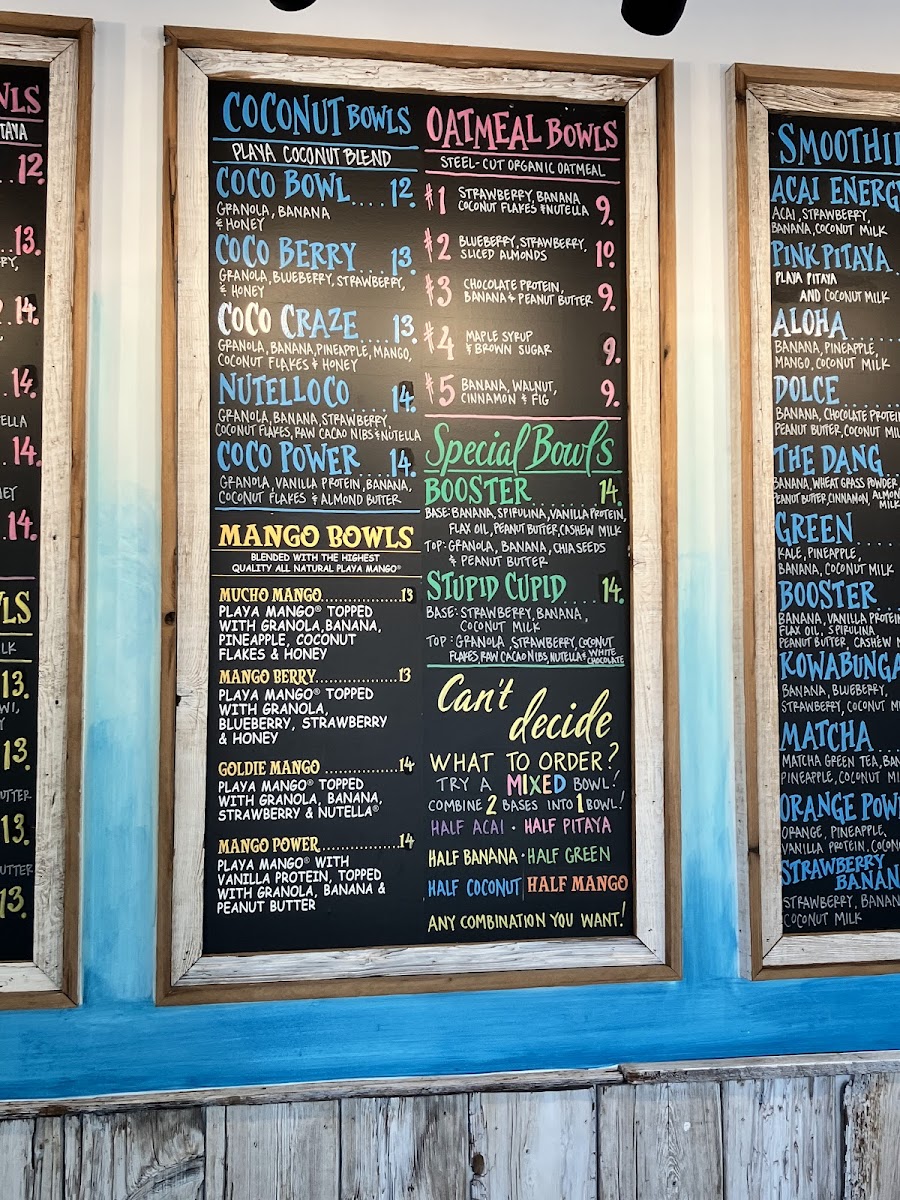 WLS
TAYA
12.
13.
RY,
14.
14.
TELLA
14.
NEY
14.
LS
LK
13.
WI,
13.
UTTER
13.
BUTTER
13.
COCONUT BOWLS
PLAYA COCONUT BLEND
COCO BOWL....12.
GRANOLA, BANANA
& HONEY
COCO BERRY....13.
GRANOLA, BLUEBERRY, STRAWBERRY,
& HONEY
COCO CRAZE....13.
GRANOLA, BANANA, PINEAPPLE, MANGO,
COCONUT FLAKES & HONEY
NUTELLOCO....14.
GRANOLA, BANANA, STRAWBERRY,
COCONUT FLAKES, RAW CACAO NIBS & NUTELLA
COCO POWER....14.
GRANOLA, VANILLA PROTEIN, BANANA,
COCONUT FLAKES & ALMOND BUTTER
MANGO BOWLS
BLENDED WITH THE HIGHEST
QUALITY ALL NATURAL PLAYA MANGO®
MUCHO MANGO...............13
PLAYA MANGO® TOPPED
WITH GRANOLA, BANANA,
PINEAPPLE, COCONUT
FLAKES & HONEY
MANGO BERRY................13
PLAYA MANGO® TOPPED
WITH GRANOLA,
BLUEBERRY, STRAWBERRY
& HONEY
GOLDIE MANGO ..............14
PLAYA MANGO® TOPPED
WITH GRANOLA, BANANA,
STRAWBERRY & NUTELLA®
MANGO POWER...............14
PLAYA MANGO® WITH
VANILLA PROTEIN, TOPPED
WITH GRANOLA, BANANA &
PEANUT BUTTER
OATMEAL BOWLS
STEEL-CUT ORGANIC OATMEAL
#1 STRAWBERRY, BANANA
COCONUT FLAKES & NUTELLA 9.
#2 BLUEBERRY, STRAWBERRY,
SLICED ALMONDS 10.
#3 CHOCOLATE PROTEIN,
BANANA & PEANUT BUTTER 9.
#4 MAPLE SYRUP
& BROWN SUGAR 9.
#5 BANANA, WALNUT,
CINNAMON & FIG 9.
Special Bowls
BOOSTER........14.
BASE: BANANA, SPIRULINA, VANILLA PROTEIN,
FLAX OIL, PEANUT BUTTER, CASHEW MILK
TOP: GRANOLA, BANANA, CHIA SEEDS
& PEANUT BUTTER
STUPID CUPID....14.
BASE: STRAWBERRY, BANANA,
COCONUT MILK
TOP: GRANOLA, STRAWBERRY, COCONUT
FLAKES, RAW CACAO NIBS, NUTELLA & WHITE CHOCOLATE
Can't
decide
WHAT TO ORDER?
TRY A MIXED BOWL!
COMBINE 2 BASES INTO 1 BOWL!
HALF ACAI · HALF PITAYA
HALF BANANA · HALF GREEN
HALF COCONUT HALF MANGO
ANY COMBINATION YOU WANT!
SMOOTHI
ACAI ENERGY
ACAI, STRAWBERRY,
BANANA, COCONUT MILK
PINK PITAYA...
PLAYA PITAYA
AND COCONUT MILK
ALOHA......
BANANA, PINEAPPLE,
MANGO, COCONUT MILK
DOLCE......
BANANA, CHOCOLATE PROTEI
PEANUT BUTTER, COCONUT MIL
THE DANG...
BANANA, WHEAT GRASS POWDER
PEANUT BUTTER, CINNAMON, ALMON
MILK
GREEN......
KALE, PINEAPPLE,
BANANA, COCONUT MILK
BOOSTER....
BANANA, VANILLA PROTEIN
FLAX OIL, SPIRULINA
PEANUT BUTTER, CASHEW M
KOWABUNGA
BANANA, BLUEBERRY,
STRAWBERRY, COCONUT M
MATCHA....
MATCHA GREEN TEA, BAN
PINEAPPLE, COCONUT MI
ORANGE POW
ORANGE, PINEAPPLE,
VANILLA PROTEIN, COCON
STRAWBERRY
BANAN
STRAWBERRY, BANAN
COCONUT MILK